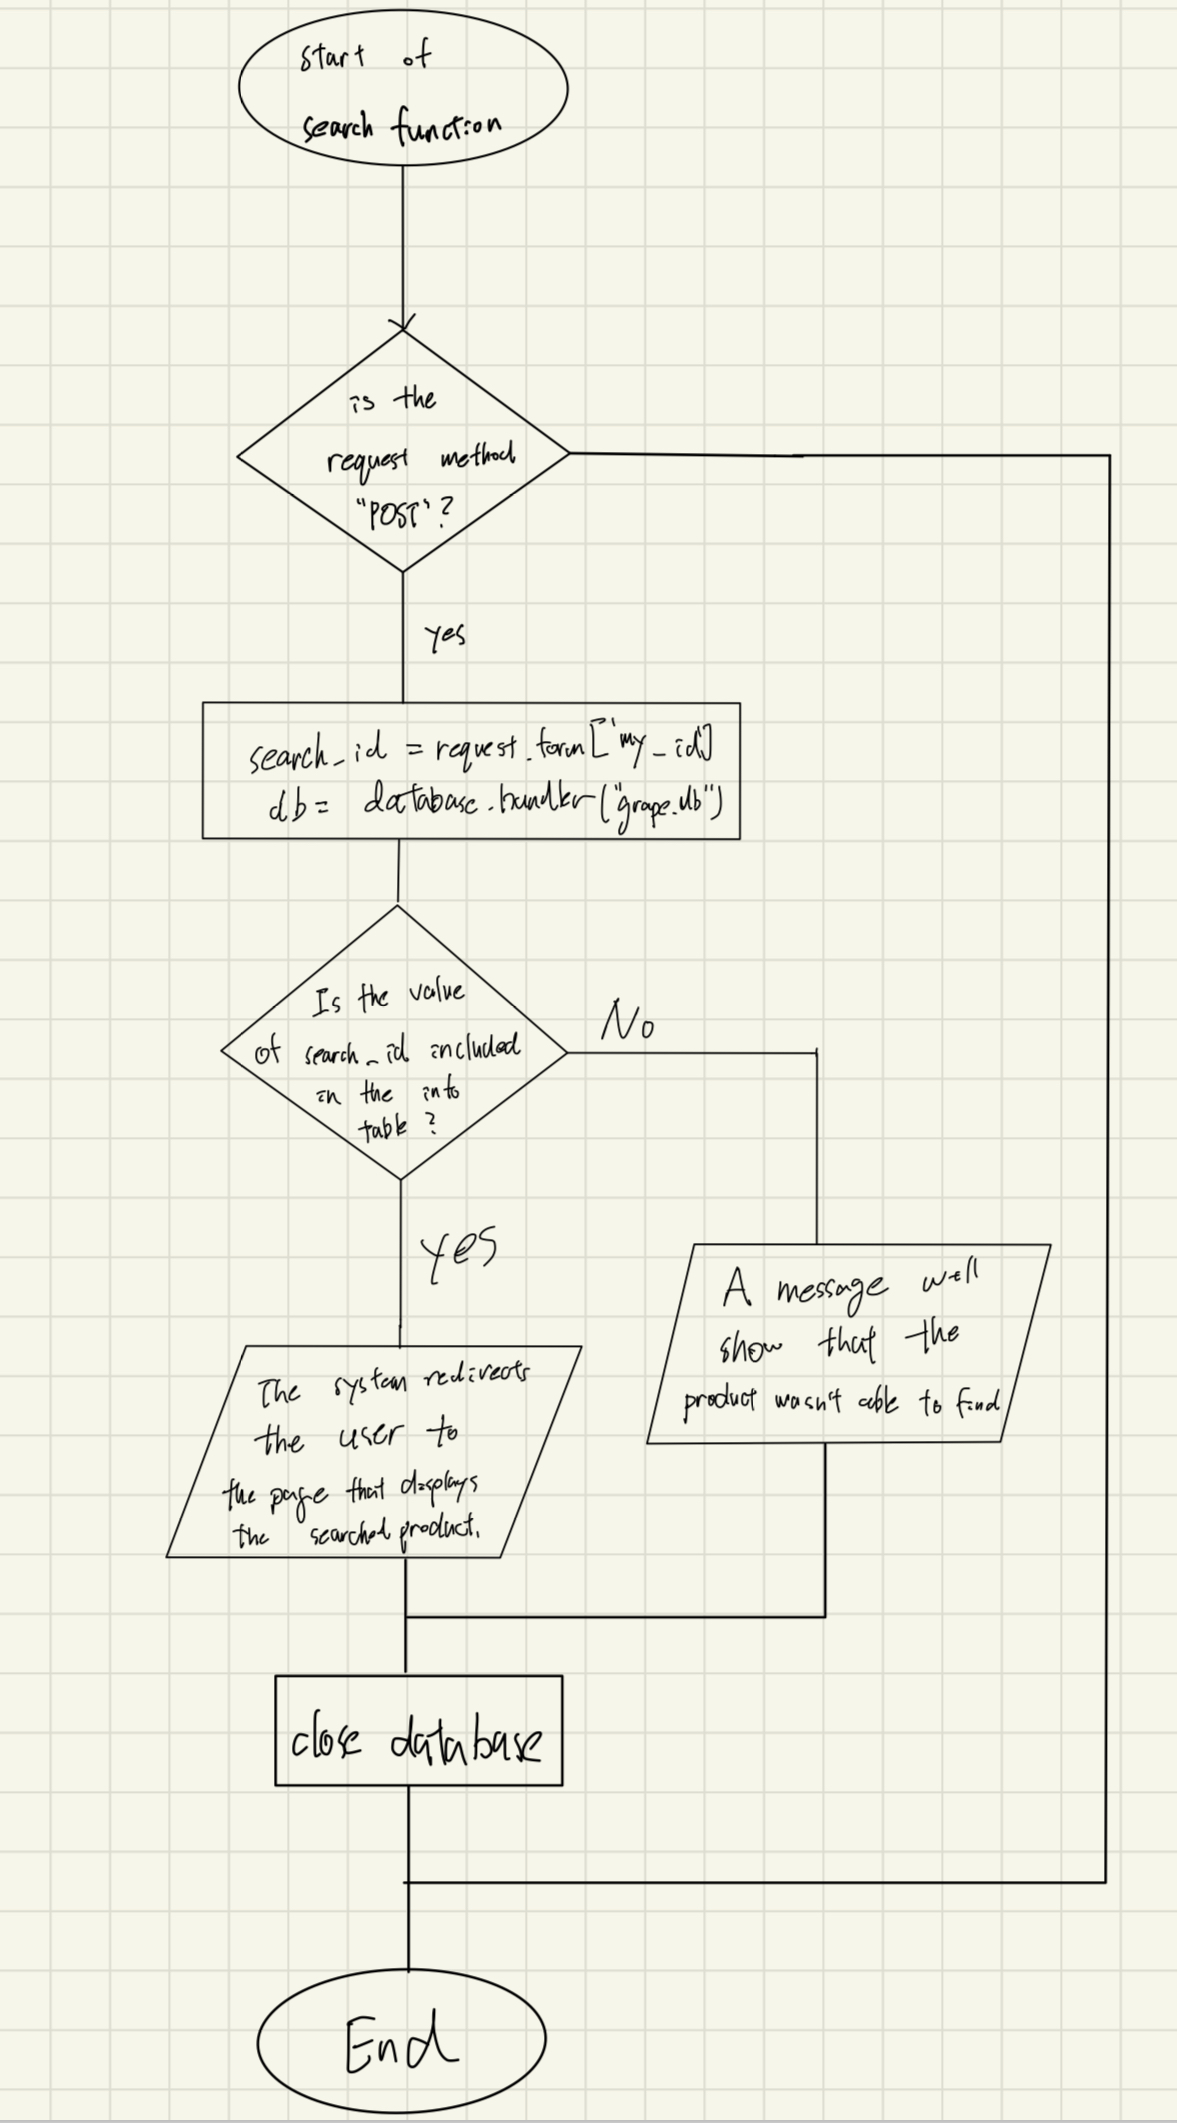 start of
search function
is the
request method
"POST"?
yes
search_id = request.form['my_id]
db = database.handler("grape.db")
Is the value
of search_id included
in the into
table?
No
yes
A message well
show that the
product wasn't able to find
The system redirects
the user to
the page that displays
the searched product.
close database
End